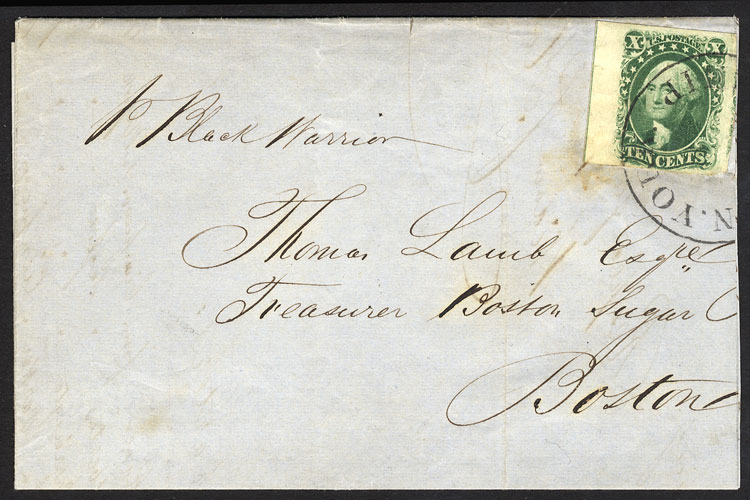 X U.S. POSTAGE X
TEN CENTS
N. YO
p Black Warrior
Thomas Lamb Esqre
Treasurer Boston Sugar
Boston